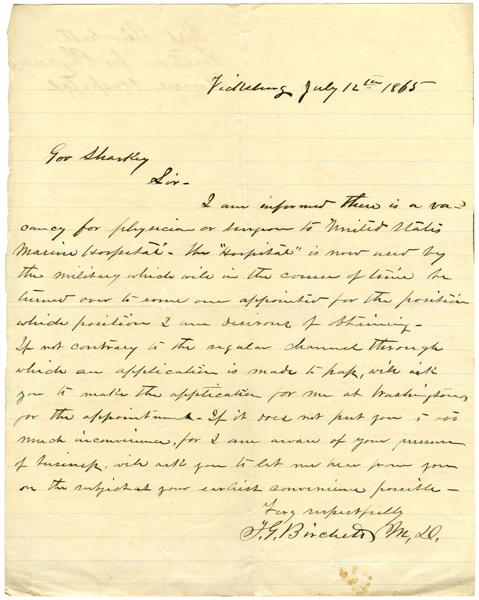 Vicksburg July 12th 1865
Gov Sharkey
Sir-
I am informed there is a va-
cancy for physician or surgeon to United States
Marine Hospital - The "Hospital" is now used by
the military which will in the course of time be
turned over to some one appointed for the position
which position I am desirous of obtaining -
If not contrary to the regular channel through
which an application is made to pass, will ask
you to make the application for me at Washington
for the appointment - If it does not put you to too
much inconvenience, for I am aware of your pressure
of business, will ask you to let me hear from you
on the subject at your earliest convenience possible -
Very respectfully
T. G. Birchett, M, D.